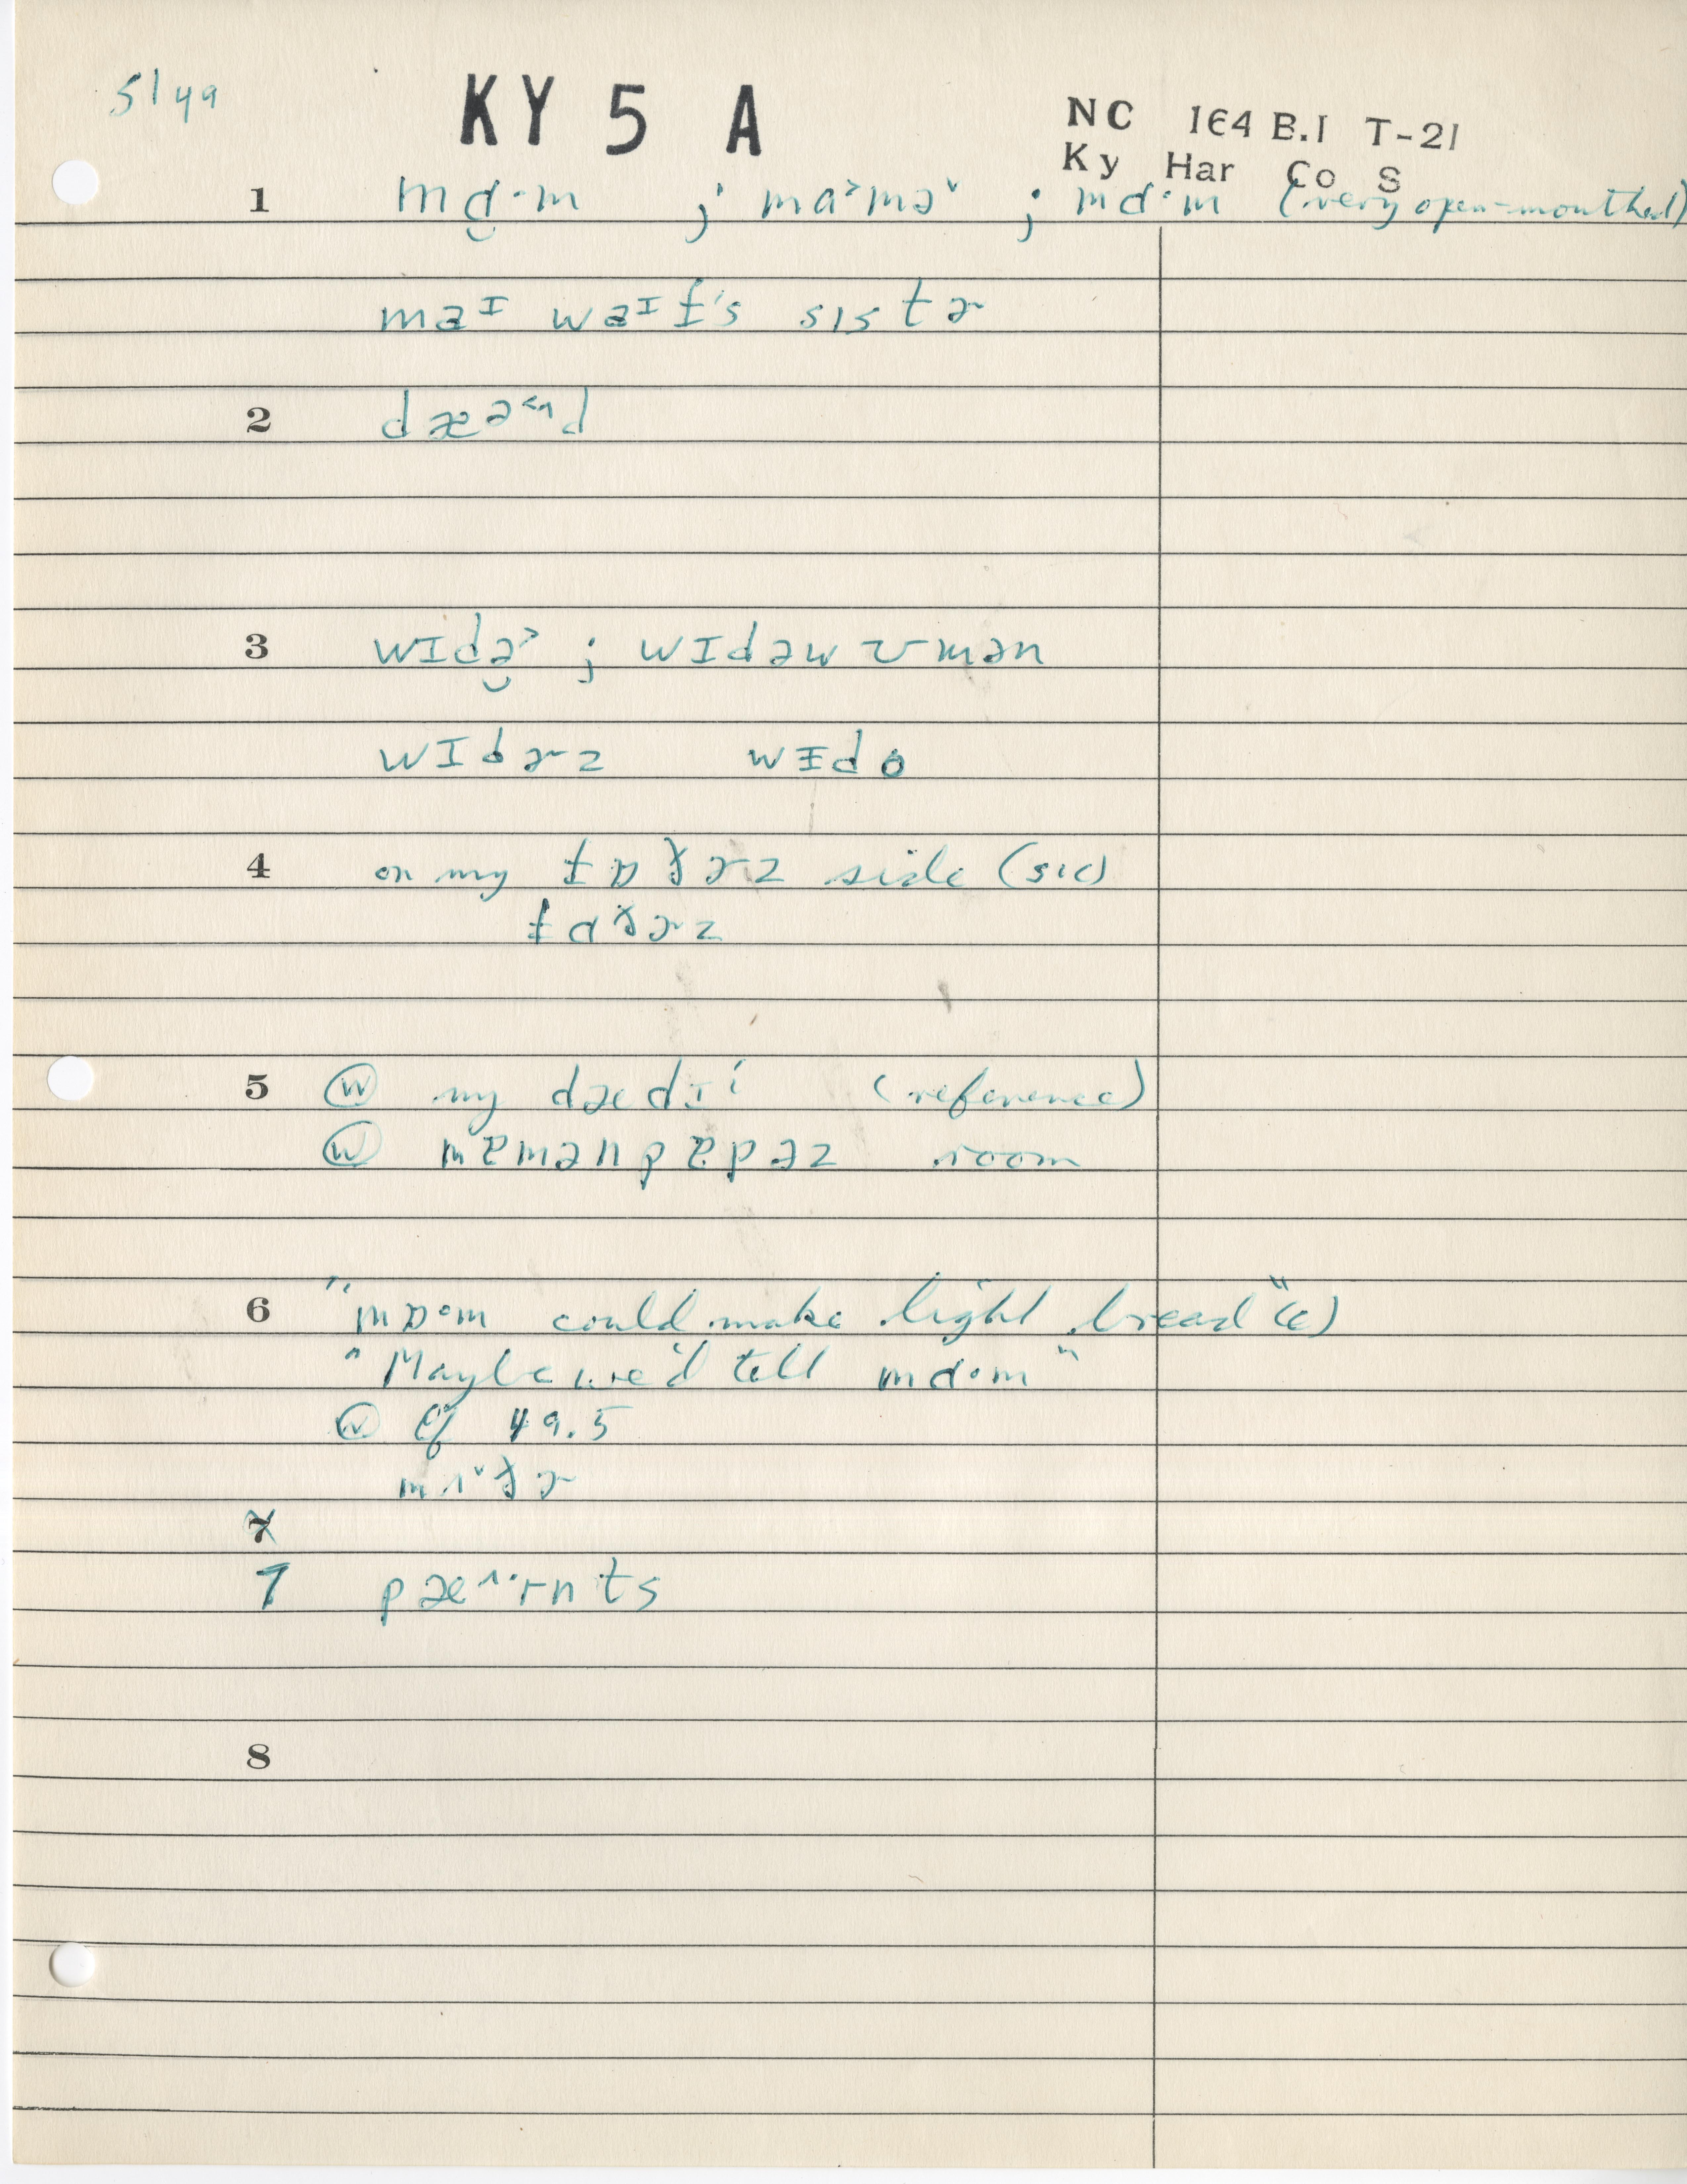 5149
KY 5 A
NC 164 B.I T-21
Ky Har Co S
1 mɑ̮·m ; mɑ˃mə˅ ; mɑ·m (very open-mouthed)
maɪ waɪf's sɪstɚ
2 dæə˂ⁿd
3 wɪdə̮˃ ; wɪdəwʊmən
wɪdɚz wɪdo
4 on my fɒðɚz side (sic)
fɑðɚz
5 Ⓦ my dædɪ (reference)
Ⓦ mamənpapəz room
6 "mɒ·m could make light bread" (c)
"Maybe we'd tell mɑ·m"
Ⓦ Cf 49.5
mʌ˅ðɚ
7
7 pæ^·rnts
8